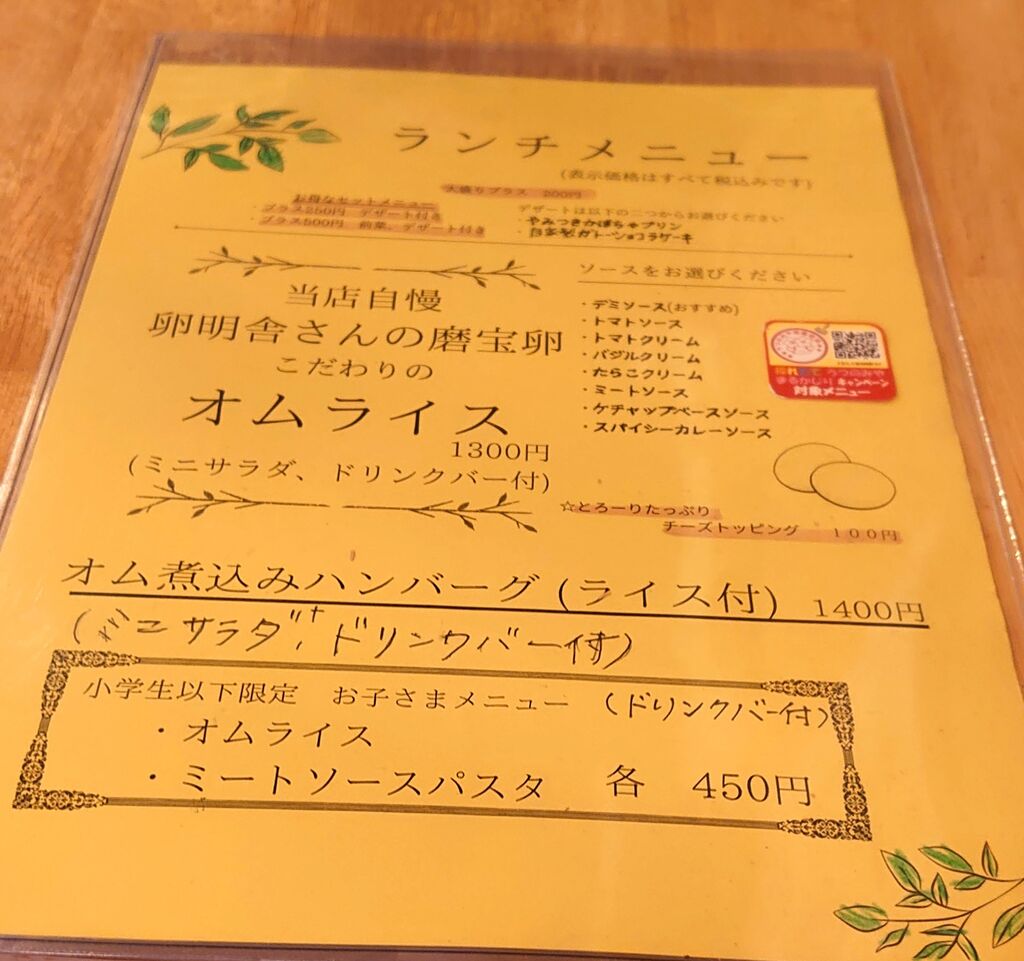 ランチメニュー
(表示価格はすべて税込みです)
大盛りプラス 200円
お得なセットメニュー
・プラス250円 デザート付き
・プラス500円 前菜、デザート付き
デザートは以下の二つからお選びください
・やみつきかぼちゃプリン
・自家製ガトーショコラケーキ
当店自慢
卵明舎さんの磨宝卵
こだわりの
オムライス
1300円
(ミニサラダ、ドリンクバー付)
ソースをお選びください
・デミソース(おすすめ)
・トマトソース
・トマトクリーム
・バジルクリーム
・たらこクリーム
・ミートソース
・ケチャップベースソース
・スパイシーカレーソース
うつのみや
まるかじり キャンペーン
対象メニュー
☆とろーりたっぷり
チーズトッピング 100円
オム煮込みハンバーグ (ライス付) 1400円
(ミニサラダ、ドリンクバー付)
小学生以下限定 お子さまメニュー (ドリンクバー付)
・オムライス
・ミートソースパスタ 各 450円